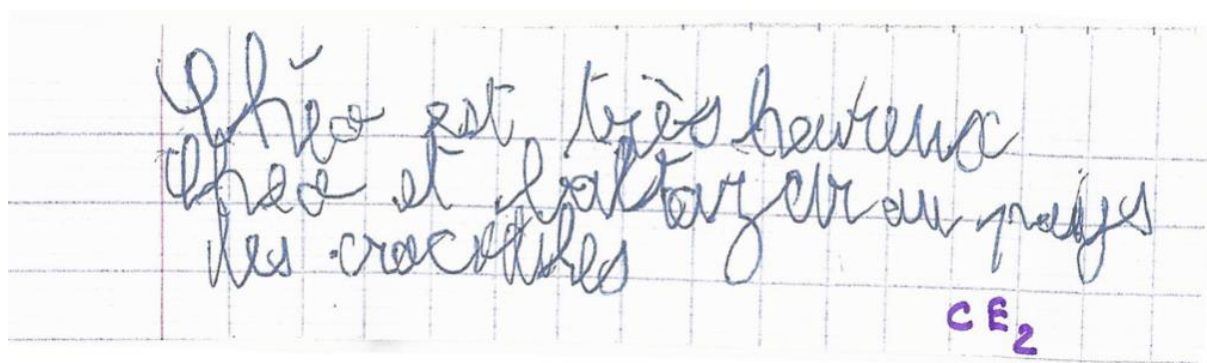 Théo est très heureux
théo et baltazar au pays
des crocodiles
CE2